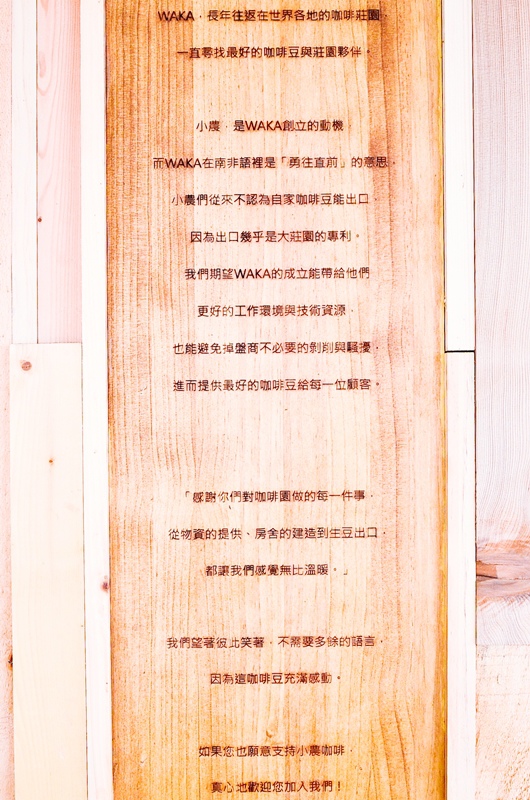 WAKA，長年往返在世界各地的咖啡莊園，
一直尋找最好的咖啡豆與莊園夥伴。
小農，是WAKA創立的動機，
而WAKA在南非語裡是「勇往直前」的意思，
小農們從來不認為自家咖啡豆能出口，
因為出口幾乎是大莊園的專利。
我們期望WAKA的成立能帶給他們
更好的工作環境與技術資源，
也能避免掉盤商不必要的剝削與騷擾，
進而提供最好的咖啡豆給每一位顧客。
「感謝你們對咖啡園做的每一件事，
從物資的提供、房舍的建造到生豆出口，
都讓我們感覺無比溫暖。」
我們望著彼此笑著，不需要多餘的語言，
因為這咖啡豆充滿感動。
如果您也願意支持小農咖啡，
真心地歡迎您加入我們！